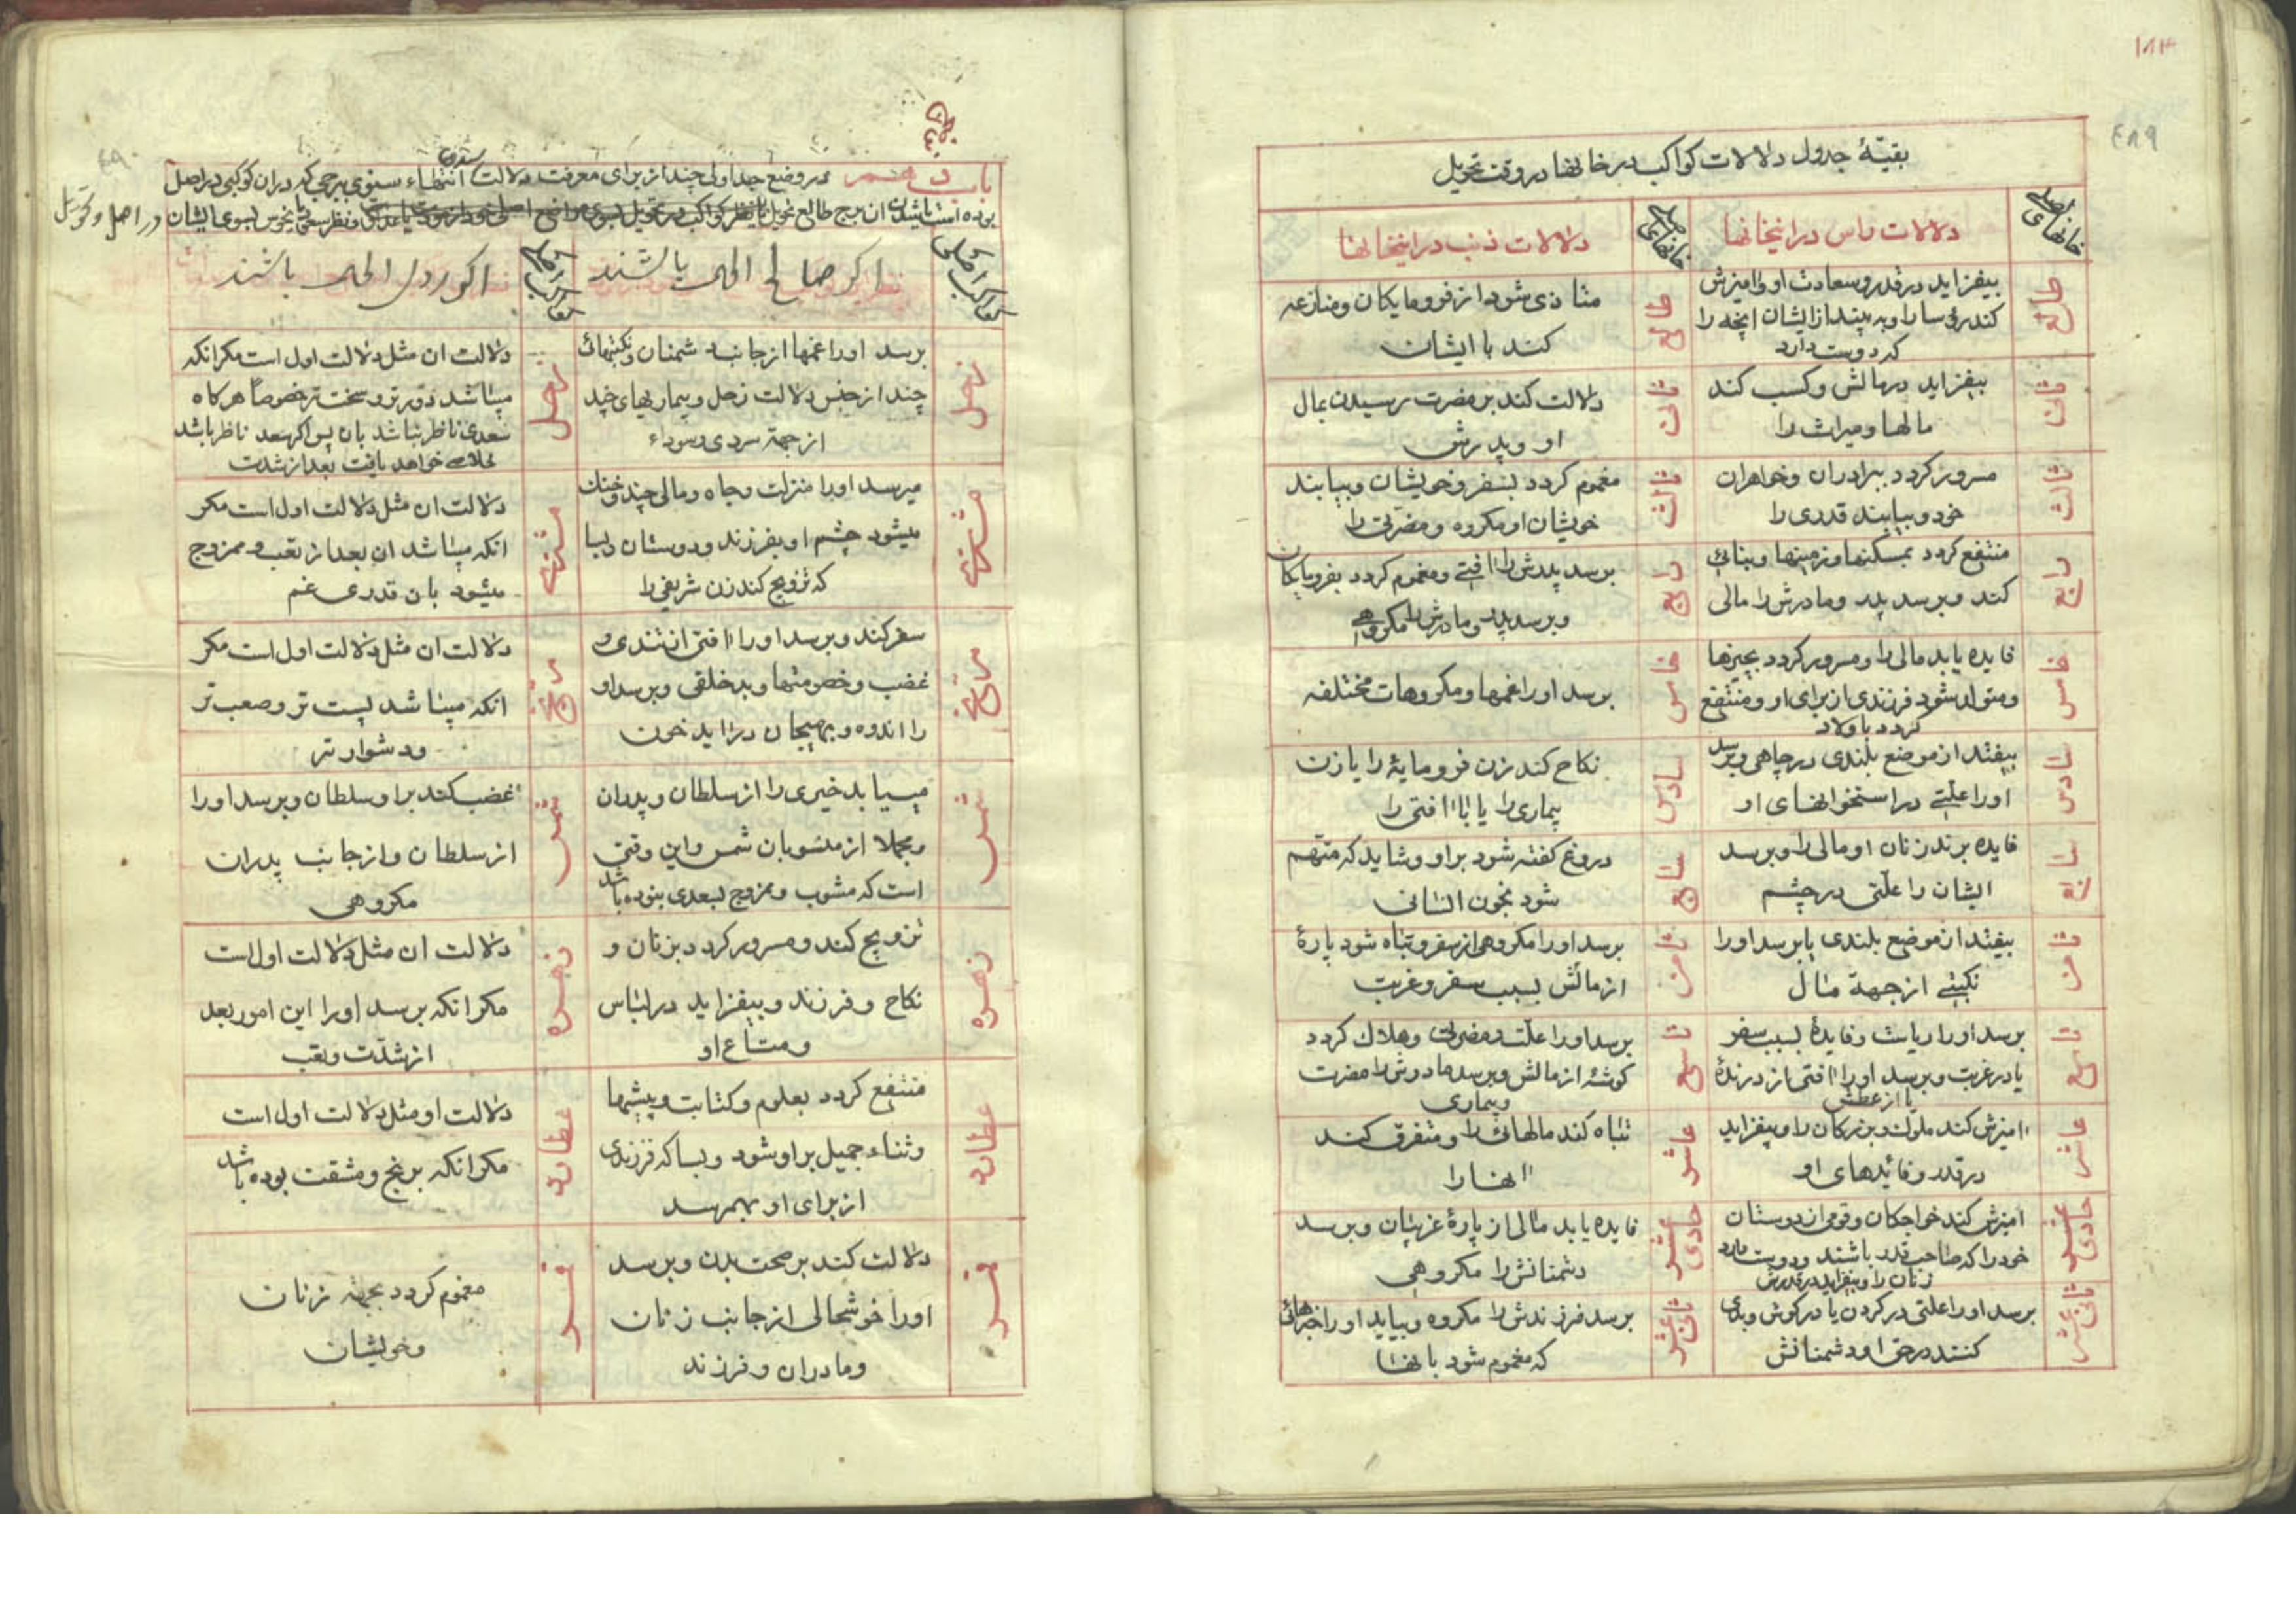 ۱۸۳
۴۸۹
بقیّهٔ جدول دلالات کواکب در خانها در وقت تحویل
خانهای اصلی
دلالات راس در اینخانها
خانهای اصلی
دلالات ذنب در اینخانها
طالع
بیفزاید در قدر و سعادت او و امیزش
کند رؤسا را و به بیند از ایشان انچه را
که دوست دارد
طالع
متاذی شود از فرومایکان و منازعه
کند با ایشان
ثانی
بیفزاید در مالش و کسب کند
مالها و میراث را
ثانی
دلالت کند بر مضرت رسیدن بمال
او و پدرش
ثالث
مسرور کردد ببرادران و خواهران
خود و بیابند قدری را
ثالث
مغموم کردد بسفر و خویشان و بیابند
خویشان او مکروه و مضرتی را
رابع
منتفع کردد بمسکنها و زمینها و بنائی
کند و برسد پدر و مادرش را مالی
رابع
برسد پدرش را افتی و مغموم کردد بفرومایکان
و برسد پدر و مادرش را مکروهی
خامس
فایده یابد مالی را و مسرور کردد بچیزها
و متولد شود فرزندی از برای او و منتفع
کردد باولاد
خامس
برسد او را غمها و مکروهات مختلفه
سادس
بیفتد از موضع بلندی در چاهی و برسد
او را علّتی در استخوانهای او
سادس
نکاح کند زن فرومایهٔ را یا زن
بیماری را یا با افتی را
سابع
فایده برند زنان او مالی را و برسد
ایشان را علّتی در چشم
سابع
دروغ کفته شود بر او و شاید که متهم
شود بخون انسانی
ثامن
بیفتد از موضع بلندی یا برسد او را
نکبتی از جهة مال
ثامن
برسد او را مکروهی از سفر و تباه شود پارهٔ
از مالش بسبب سفر و غربت
تاسع
برسد او را ریاست و فایدهٔ بسبب سفر
یا در غربت و برسد او را افتی از درندهٔ
یا از عطش
تاسع
برسد او را علّت و مضرتی و هلاک کردد
کوشهٔ از مالش و برسد مادرش را مضرت
و بیماری
عاشر
امیزش کند ملوک و بزرکان را و بیفزاید
در قدر و فایدهای او
عاشر
تباه کند مالهائی را و متفرق کند
انها را
حادی عشر
امیزش کند خواجکان و قومی از دوستان
خود را که صاحب قدر باشند و دوست دارد
زنان را و بیفزاید در قدرش
حادی عشر
فایده یابد مالی از پارهٔ غریبان و برسد
دشمنانش را مکروهی
ثانی عشر
برسد او را علتی در کردن یا در کوش و بدی
کنند در حق او دشمنانش
ثانی عشر
برسد فرزندش را مکروه و بیاید او را خبرهائی
که مغموم شود بانها
۴۹۰
در وضع جداولی چند از برای معرفت دلالت انتهاء سنوی ببرجی که در ان کوکبی در اصل
بوده است
در اصل و تحویل
کواکب اصلی
اکر صالح الحال باشند
کواکب اصلی
اکر ردی الحال باشند
زحل
برسد او را غمها از جانب دشمنان و نکبتهائی
چند از جنس دلالت زحل و بیماریهای چند
از جهة سردی و سوداء
زحل
دلالت ان مثل دلالت اول است مکر انکه
میباشد زورتر و سخت تر خصوصاً هرکاه
سعدی ناظر نباشد بان پس اکر سعد ناظر باشد
خلاصی خواهد یافت بعد از شدت
مشتری
میرسد او را منزلت و جاه و مالی چند و خنک
میشود چشم او بفرزند و دوستان و بسا
که تزویج کند زن شریفی را
مشتری
دلالت ان مثل دلالت اول است مکر
انکه میباشد ان بعد از تعب و ممزوج
میشود بان قدری غم
مریخ
سفر کند و برسد او را افتی از تندی و
غضب و خصومتها و بدخلقی و برسد او
را اندوه و بهیجان دراید خون
مریخ
دلالت ان مثل دلالت اول است مکر
انکه میباشد پست تر و صعب تر
و دشوارتر
شمس
میبیابد خیری را از سلطان و پدران
و مجملا از منسوبان شمس و این وقتی
است که مشوب و ممزوج بسعدی بنوده باشد
شمس
غضب کند بر او سلطان و برسد او را
از سلطان و از جانب پدران
مکروهی
زهره
تزویج کند و مسرور کردد بزنان و
نکاح و فرزند و بیفزاید در لباس
و متاع او
زهره
دلالت ان مثل دلالت اول است
مکر انکه برسد او را این امور بعد
از شدّت و تعب
عطارد
منتفع کردد بعلوم و کتابت و پیشها
و ثناء جمیل بر او شود و بسا که فرزندی
از برای او بهمرسد
عطارد
دلالت او مثل دلالت اول است
مکر انکه برنج و مشقت بوده باشد
قمر
دلالت کند بر صحت بدن و برسد
او را خوشحالی از جانب زنان
و مادران و فرزند
قمر
مغموم کردد بجهة زنان
و خویشان